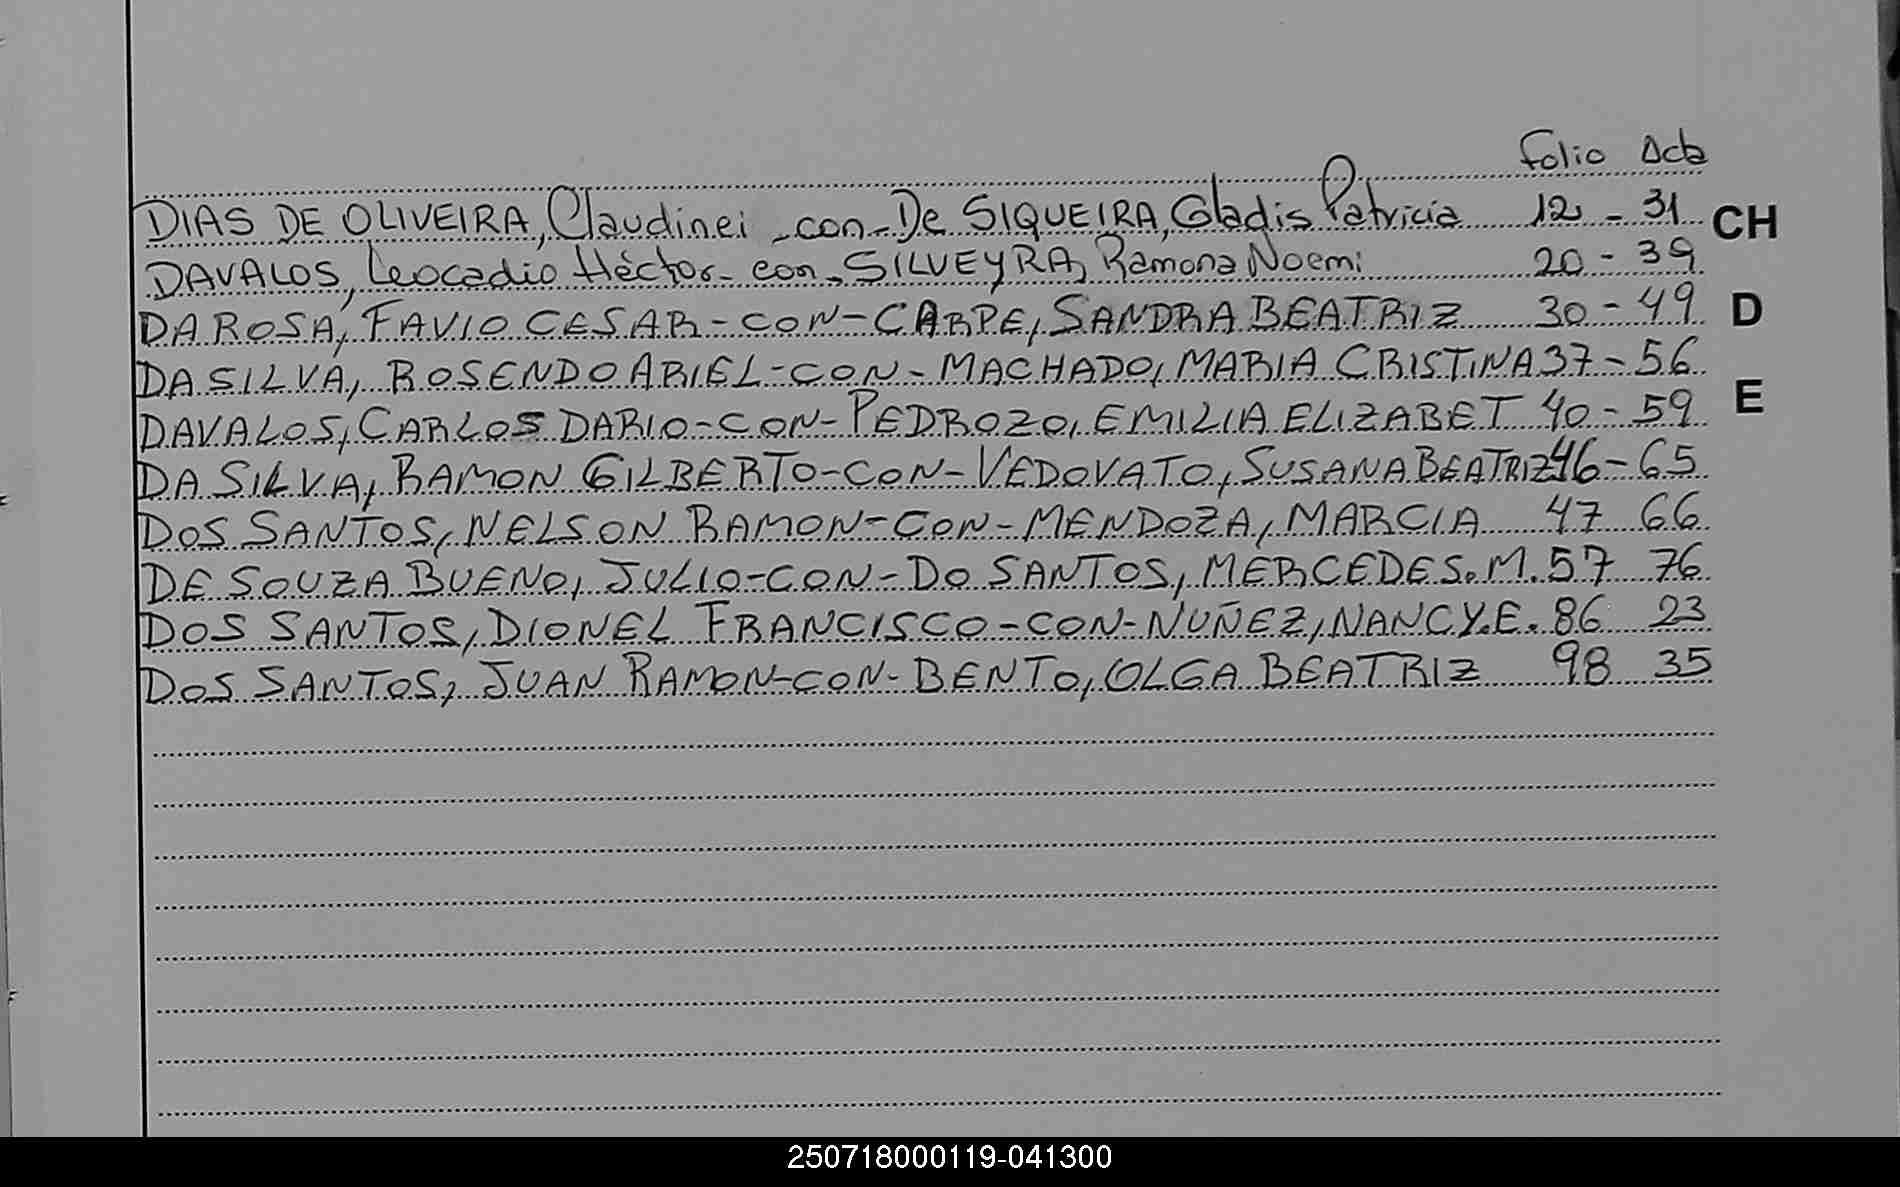 Folio Acta
DIAS DE OLIVEIRA, Claudinei - con - De SIQUEIRA, Gladis Patricia 12 - 31 CH
DAVALOS, Leocadio Héctor - con - SILVEYRA, Ramona Noemi 20 - 39
DA ROSA, FAVIO CESAR - CON - CARPE, SANDRA BEATRIZ 30 - 49 D
DA SILVA, ROSENDO ARIEL - CON - MACHADO, MARIA CRISTINA 37 - 56
DAVALOS, CARLOS DARIO - CON - PEDROZO, EMILIA ELIZABET 40 - 59 E
DA SILVA, RAMON GILBERTO - CON - VEDOVATO, SUSANA BEATRIZ 46 - 65
DOS SANTOS, NELSON RAMON - CON - MENDOZA, MARCIA 47 66
DE SOUZA BUENO, JULIO - CON - DO SANTOS, MERCEDES. M. 57 76
DOS SANTOS, DIONEL FRANCISCO - CON - NUÑEZ, NANCY. E. 86 23
DOS SANTOS, JUAN RAMON - CON - BENTO, OLGA BEATRIZ 98 35
250718000119-041300